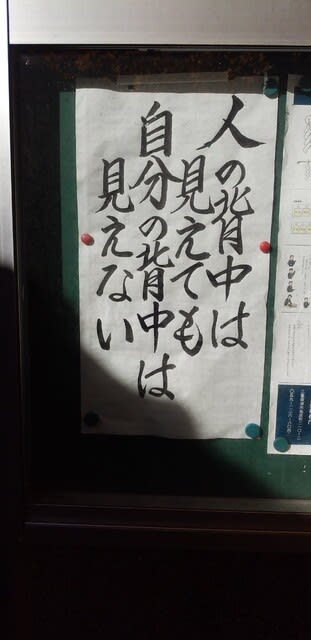 人の背中は
見えても
自分の背中は
見えない